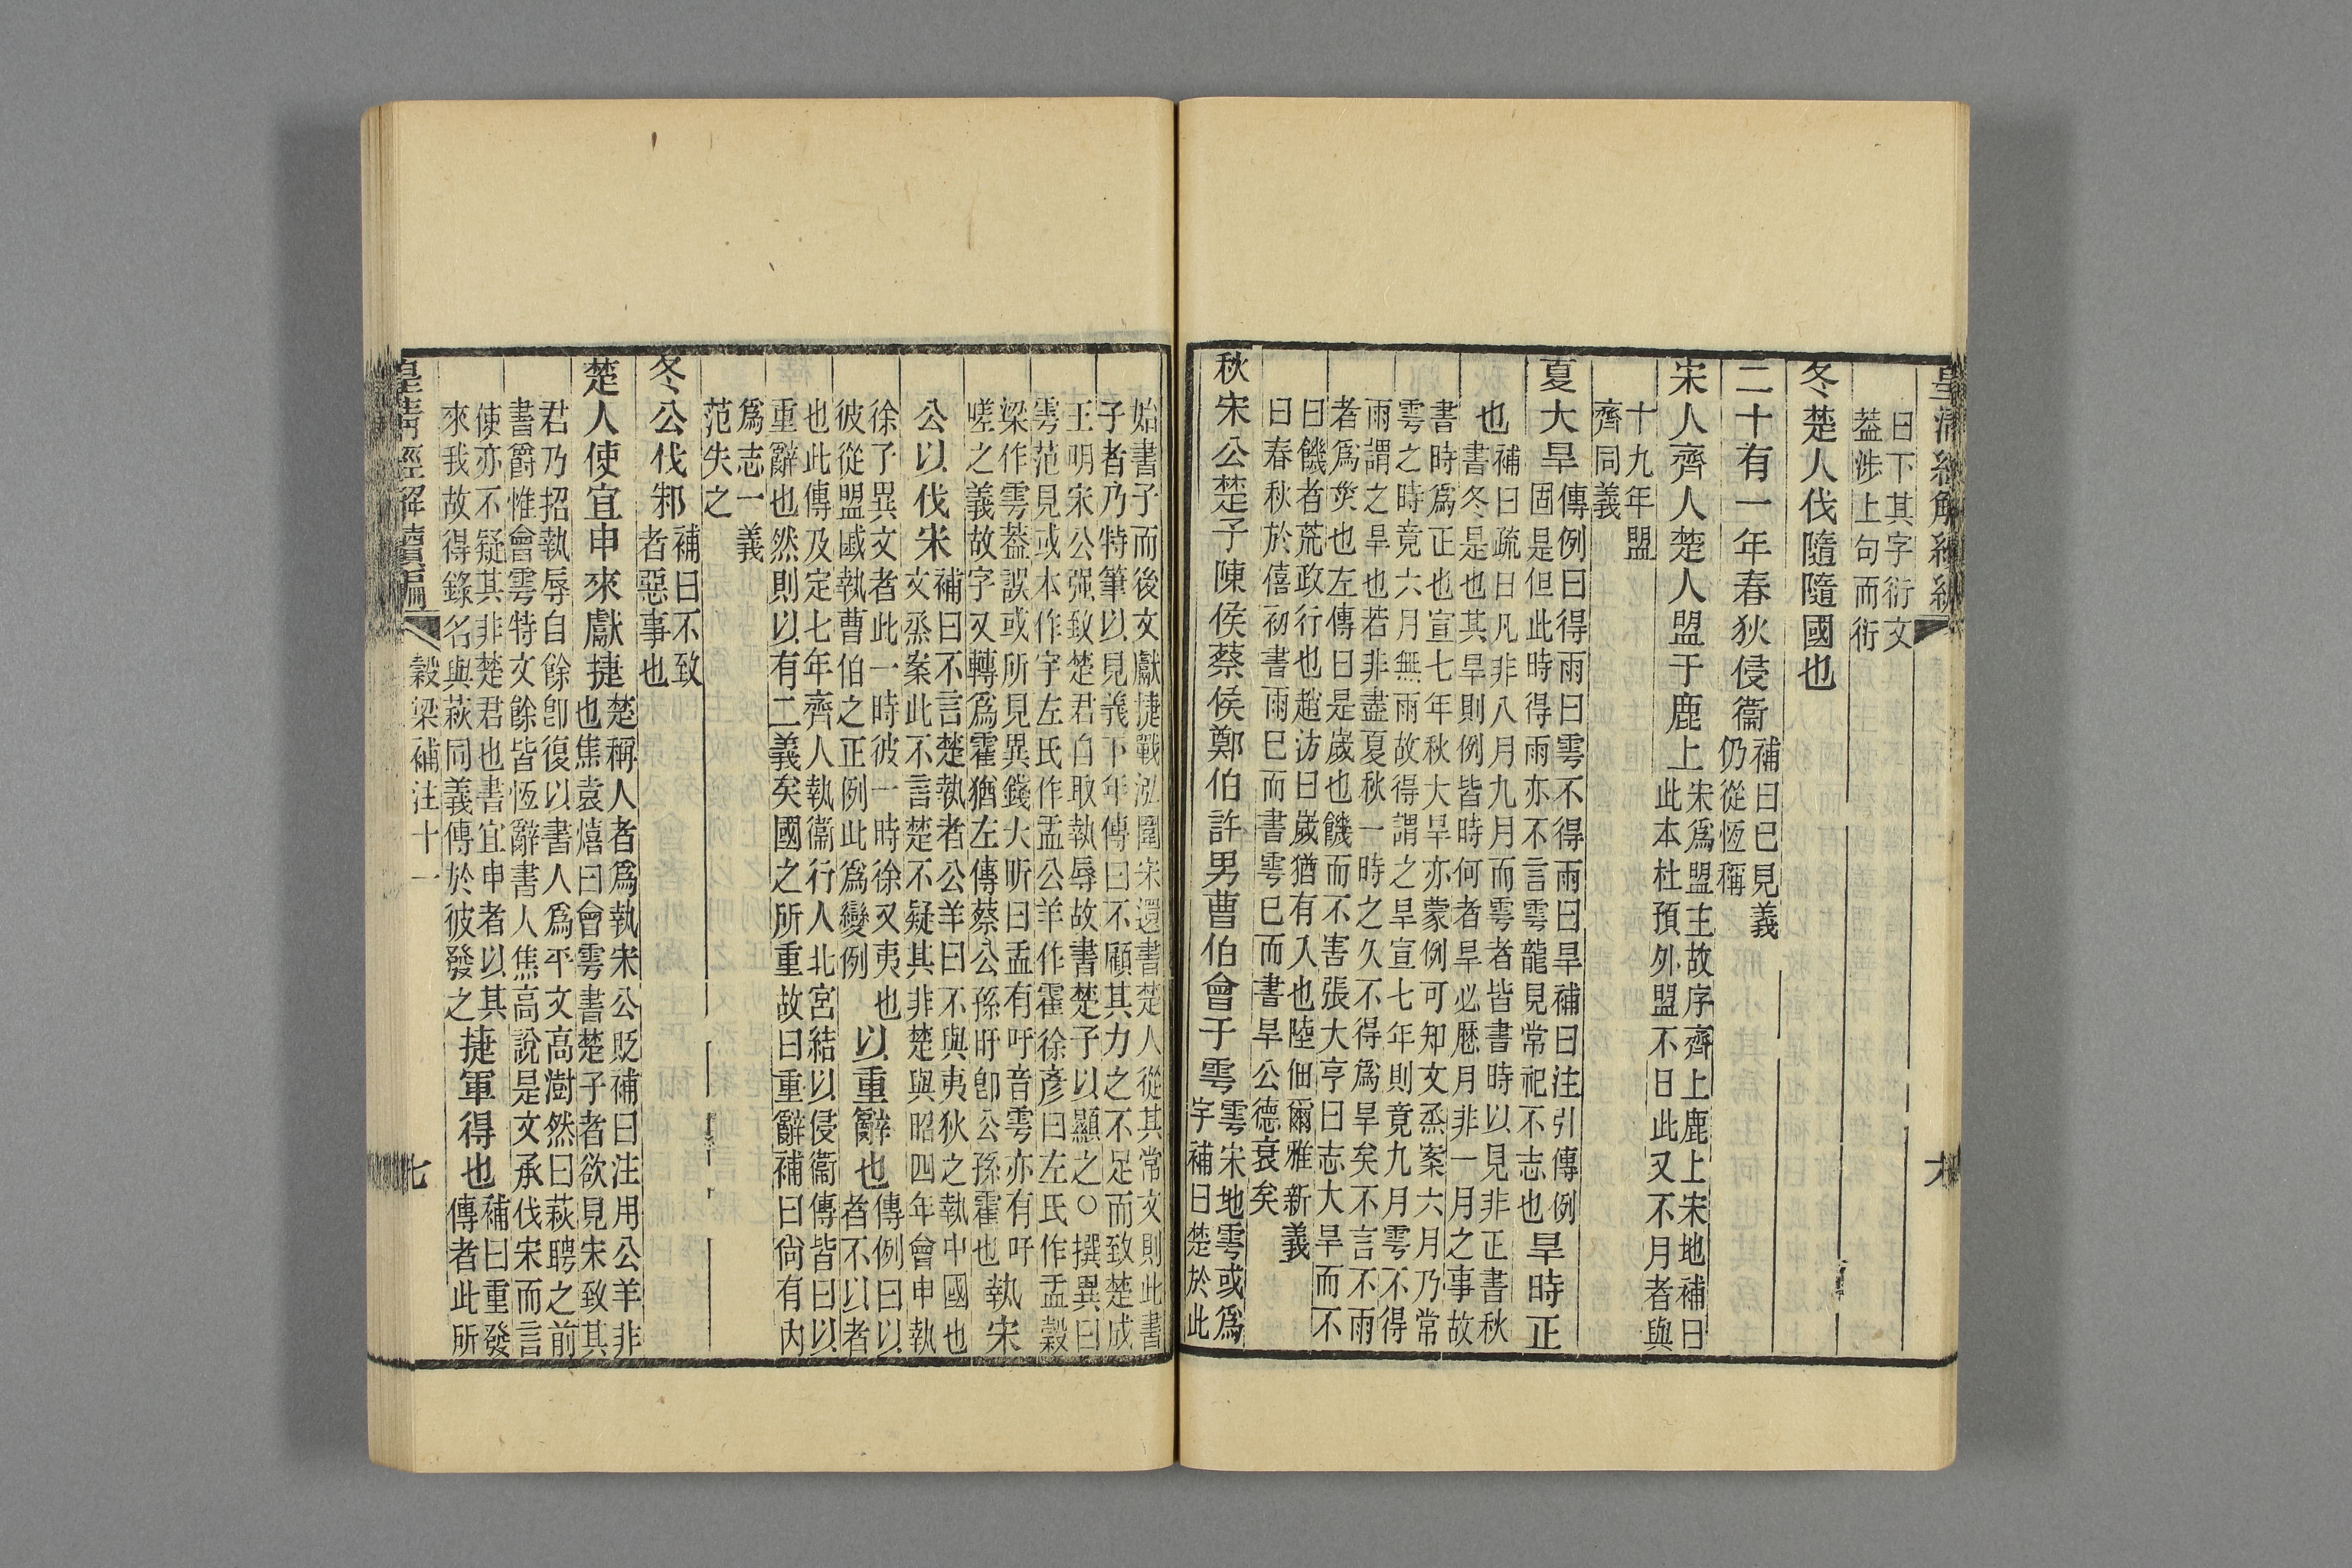 皇清經解續編
大
曰下其字衍文
葢涉上句而衍
冬楚人伐隨隨國也
二十有一年春狄侵衞補曰已見義
仍從恆稱
宋人齊人楚人盟于鹿上宋爲盟主故序齊上鹿上宋地補曰
此本杜預外盟不日此又不月者與
十九年盟
齊同義
夏大旱傳例曰得雨曰雩不得雨曰旱補曰注引傳例
固是但此時得雨亦不言雩龍見常祀不志也旱時正
也補曰疏曰凡非八月九月而雩者皆書時以見非正書秋
書冬是也其旱則例皆時何者旱必厯月非一月之事故
書時爲正也宣七年秋大旱亦蒙例可知文烝案六月乃常
雩之時竟六月無雨故得謂之旱宣七年則竟九月雩不得
雨謂之旱也若非盡夏秋一時之久不得爲旱矣不言不雨
者爲烖也左傳曰是歲也饑而不害張大亨曰志大旱而不
曰饑者荒政行也趙汸曰歲猶有入也陸佃爾雅新義
曰春秋於僖初書雨巳而書雩巳而書旱公德衰矣
秋宋公楚子陳侯蔡侯鄭伯許男曹伯會于雩雩宋地雩或爲
宇補曰楚於此
始書子而後文獻捷戰泓圍宋還書楚人從其常文則此書
子者乃特筆以見義下年傳曰不顧其力之不足而致楚成
王明宋公强致楚君自取執辱故書楚子以顯之○撰異曰
雩范見或本作宇左氏作盂公羊作霍徐彥曰左氏作盂穀
梁作雩葢誤或所見異錢大昕曰盂有吁音雩亦有吁
嗟之義故字又轉爲霍猶左傳蔡公孫旴卽公孫霍也執宋
公以伐宋補曰不言楚執者公羊曰不與夷狄之執中國也
文烝案此不言楚不疑其非楚與昭四年會申執
徐子異文者此一時彼一時徐又夷也
彼從盟國執曹伯之正例此爲變例以重辭也傳例曰以
者不以者
也此傳及定七年齊人執衞行人北宮結以侵衞傳皆曰以
重辭也然則以有二義矣國之所重故曰重辭補曰尙有內
爲志一義
范失之
冬公伐邾補曰不致
者惡事也
楚人使宜申來獻捷楚稱人者爲執宋公貶補曰注用公羊非
也焦袁熹曰會雩書楚子者欲見宋致其
君乃招執辱自餘卽復以書人爲平文高澍然曰萩聘之前
書爵惟會雩特文餘皆恆辭書人焦高說是文承伐宋而言
使亦不疑其非楚君也書宜申者以其
來我故得錄名與萩同義傳於彼發之捷軍得也補曰重發
傳者此所
皇清經解續編
穀梁補注十一
七